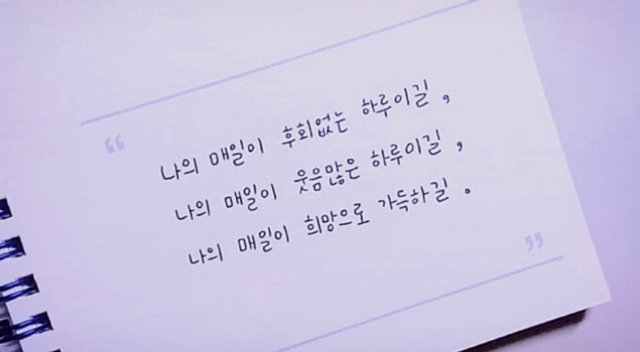 “
나의 매일이 후회없는 하루이길,
나의 매일이 웃음많은 하루이길,
나의 매일이 희망으로 가득하길.
”